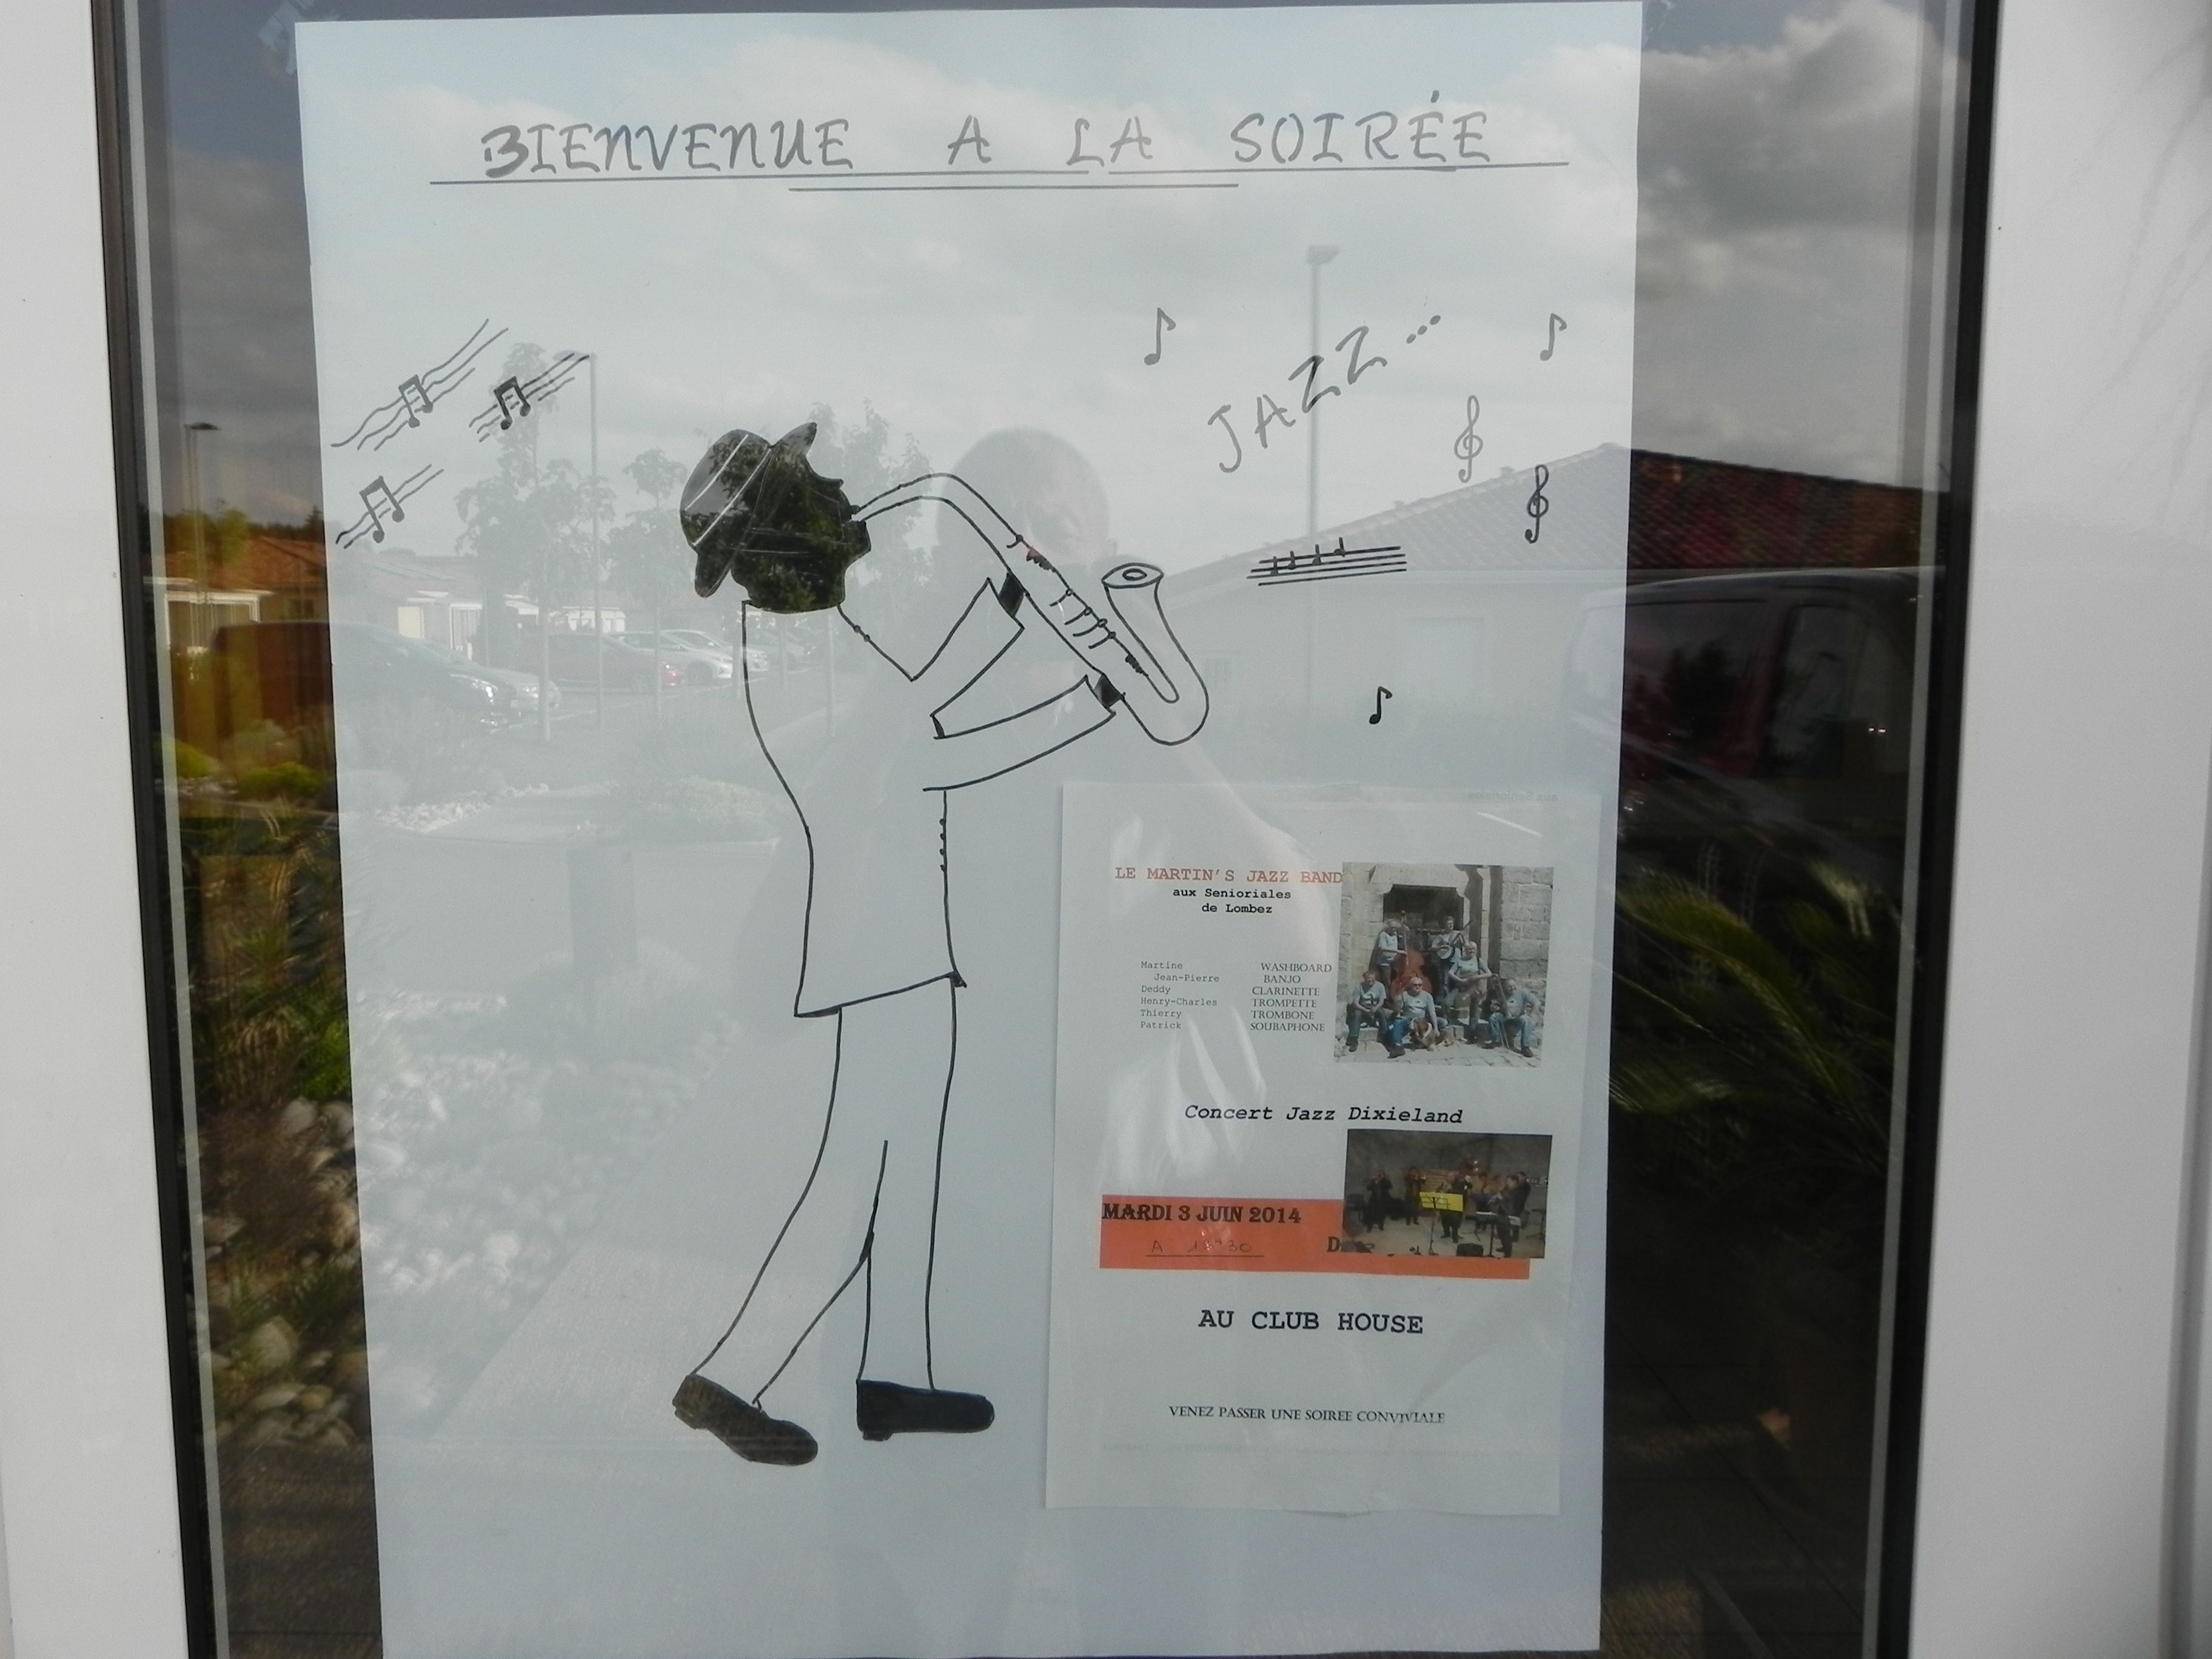 BIENVENUE A LA SOIRÉE
JAZZ...
LE MARTIN'S JAZZ BAND
aux Senioriales
de Lombez
Martine WASHBOARD
Jean-Pierre BANJO
Deddy CLARINETTE
Henry-Charles TROMPETTE
Thierry TROMBONE
Patrick SOUBAPHONE
Concert Jazz Dixieland
MARDI 3 JUIN 2014
A
AU CLUB HOUSE
VENEZ PASSER UNE SOIREE CONVIVIALE